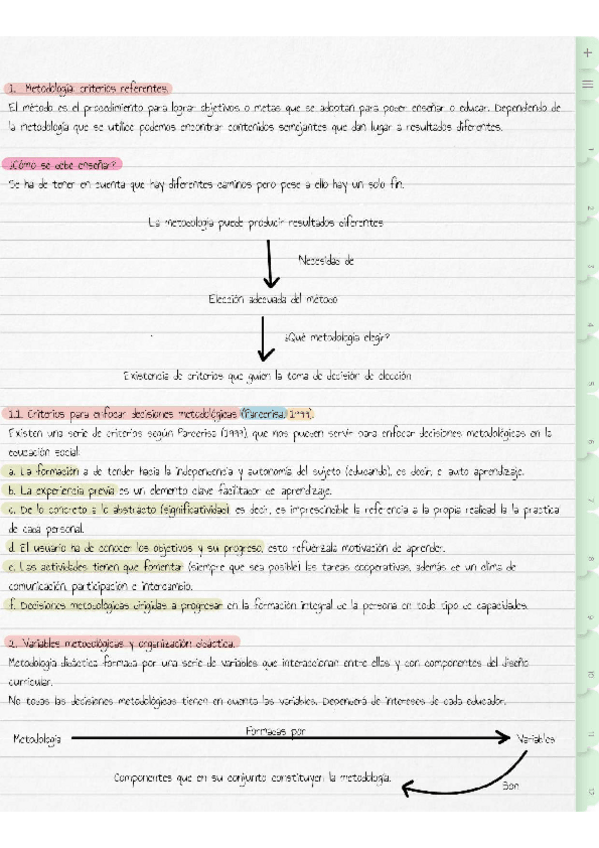 1. Metodología: criterios referentes.
El método es el procedimiento para lograr objetivos o metas que se adoptan para poder enseñar o educar. Dependiendo de
la metodología que se utilice podemos encontrar contenidos semejantes que dan lugar a resultados diferentes.
¿Cómo se debe enseñar?
Se ha de tener en cuenta que hay diferentes caminos pero pese a ello hay un solo fin.
La metodología puede producir resultados diferentes
Necesidad de
Elección adecuada del método
¿Qué metodología elegir?
Existencia de criterios que guien la toma de decisión de elección
1.1. Criterios para enfocar decisiones metodológicas (Parcerisa, 1999).
Existen una serie de criterios según Parcerisa (1999), que nos pueden servir para enfocar decisiones metodológicas en la
educación social:
a. La formación a de tender hacia la independencia y autonomía del sujeto (educando), es decir, el auto aprendizaje.
b. La experiencia previa es un elemento clave facilitador de aprendizaje.
c. De lo concreto a lo abstracto (significatividad), es decir, es imprescindible la referencia a la propia realidad la la práctica
de cada persona).
d. El usuario ha de conocer los objetivos y su progreso, esto refuerza la motivación de aprender.
e. Las actividades tienen que fomentar (siempre que sea posible) las tareas cooperativas, además de un clima de
comunicación, participación e intercambio.
f. Decisiones metodológicas dirigidas a progresar en la formación integral de la persona en todo tipo de capacidades.
2. Variables metodológicas y organización didáctica.
Metodología didáctica formada por una serie de variables que interaccionan entre ellas y con componentes del diseño
curricular.
No todas las decisiones metodológicas tienen en cuenta las variables. Dependerá de intereses de cada educador.
Metodología
Formadas por
Variables
Componentes que en su conjunto constituyen la metodología.
Son
1
2
3
4
5
6
7
8
9
10
11